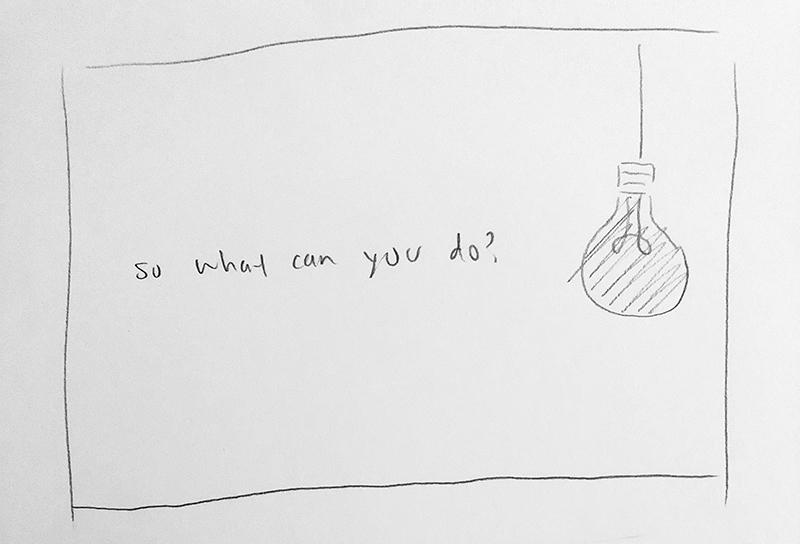 so what can you do?